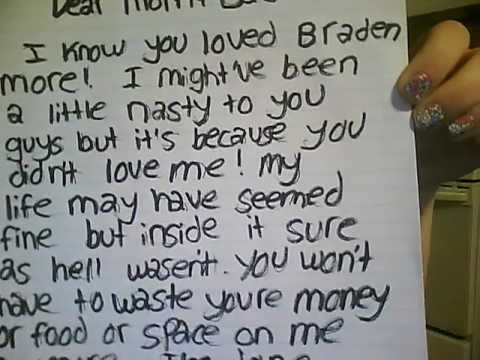 Dear
I know you loved Braden
more! I might've been
a little nasty to you
guys but it's because you
didn't love me! my
life may have seemed
fine but inside it sure
as hell wasen't. you won't
have to waste youre money
or food or space on me